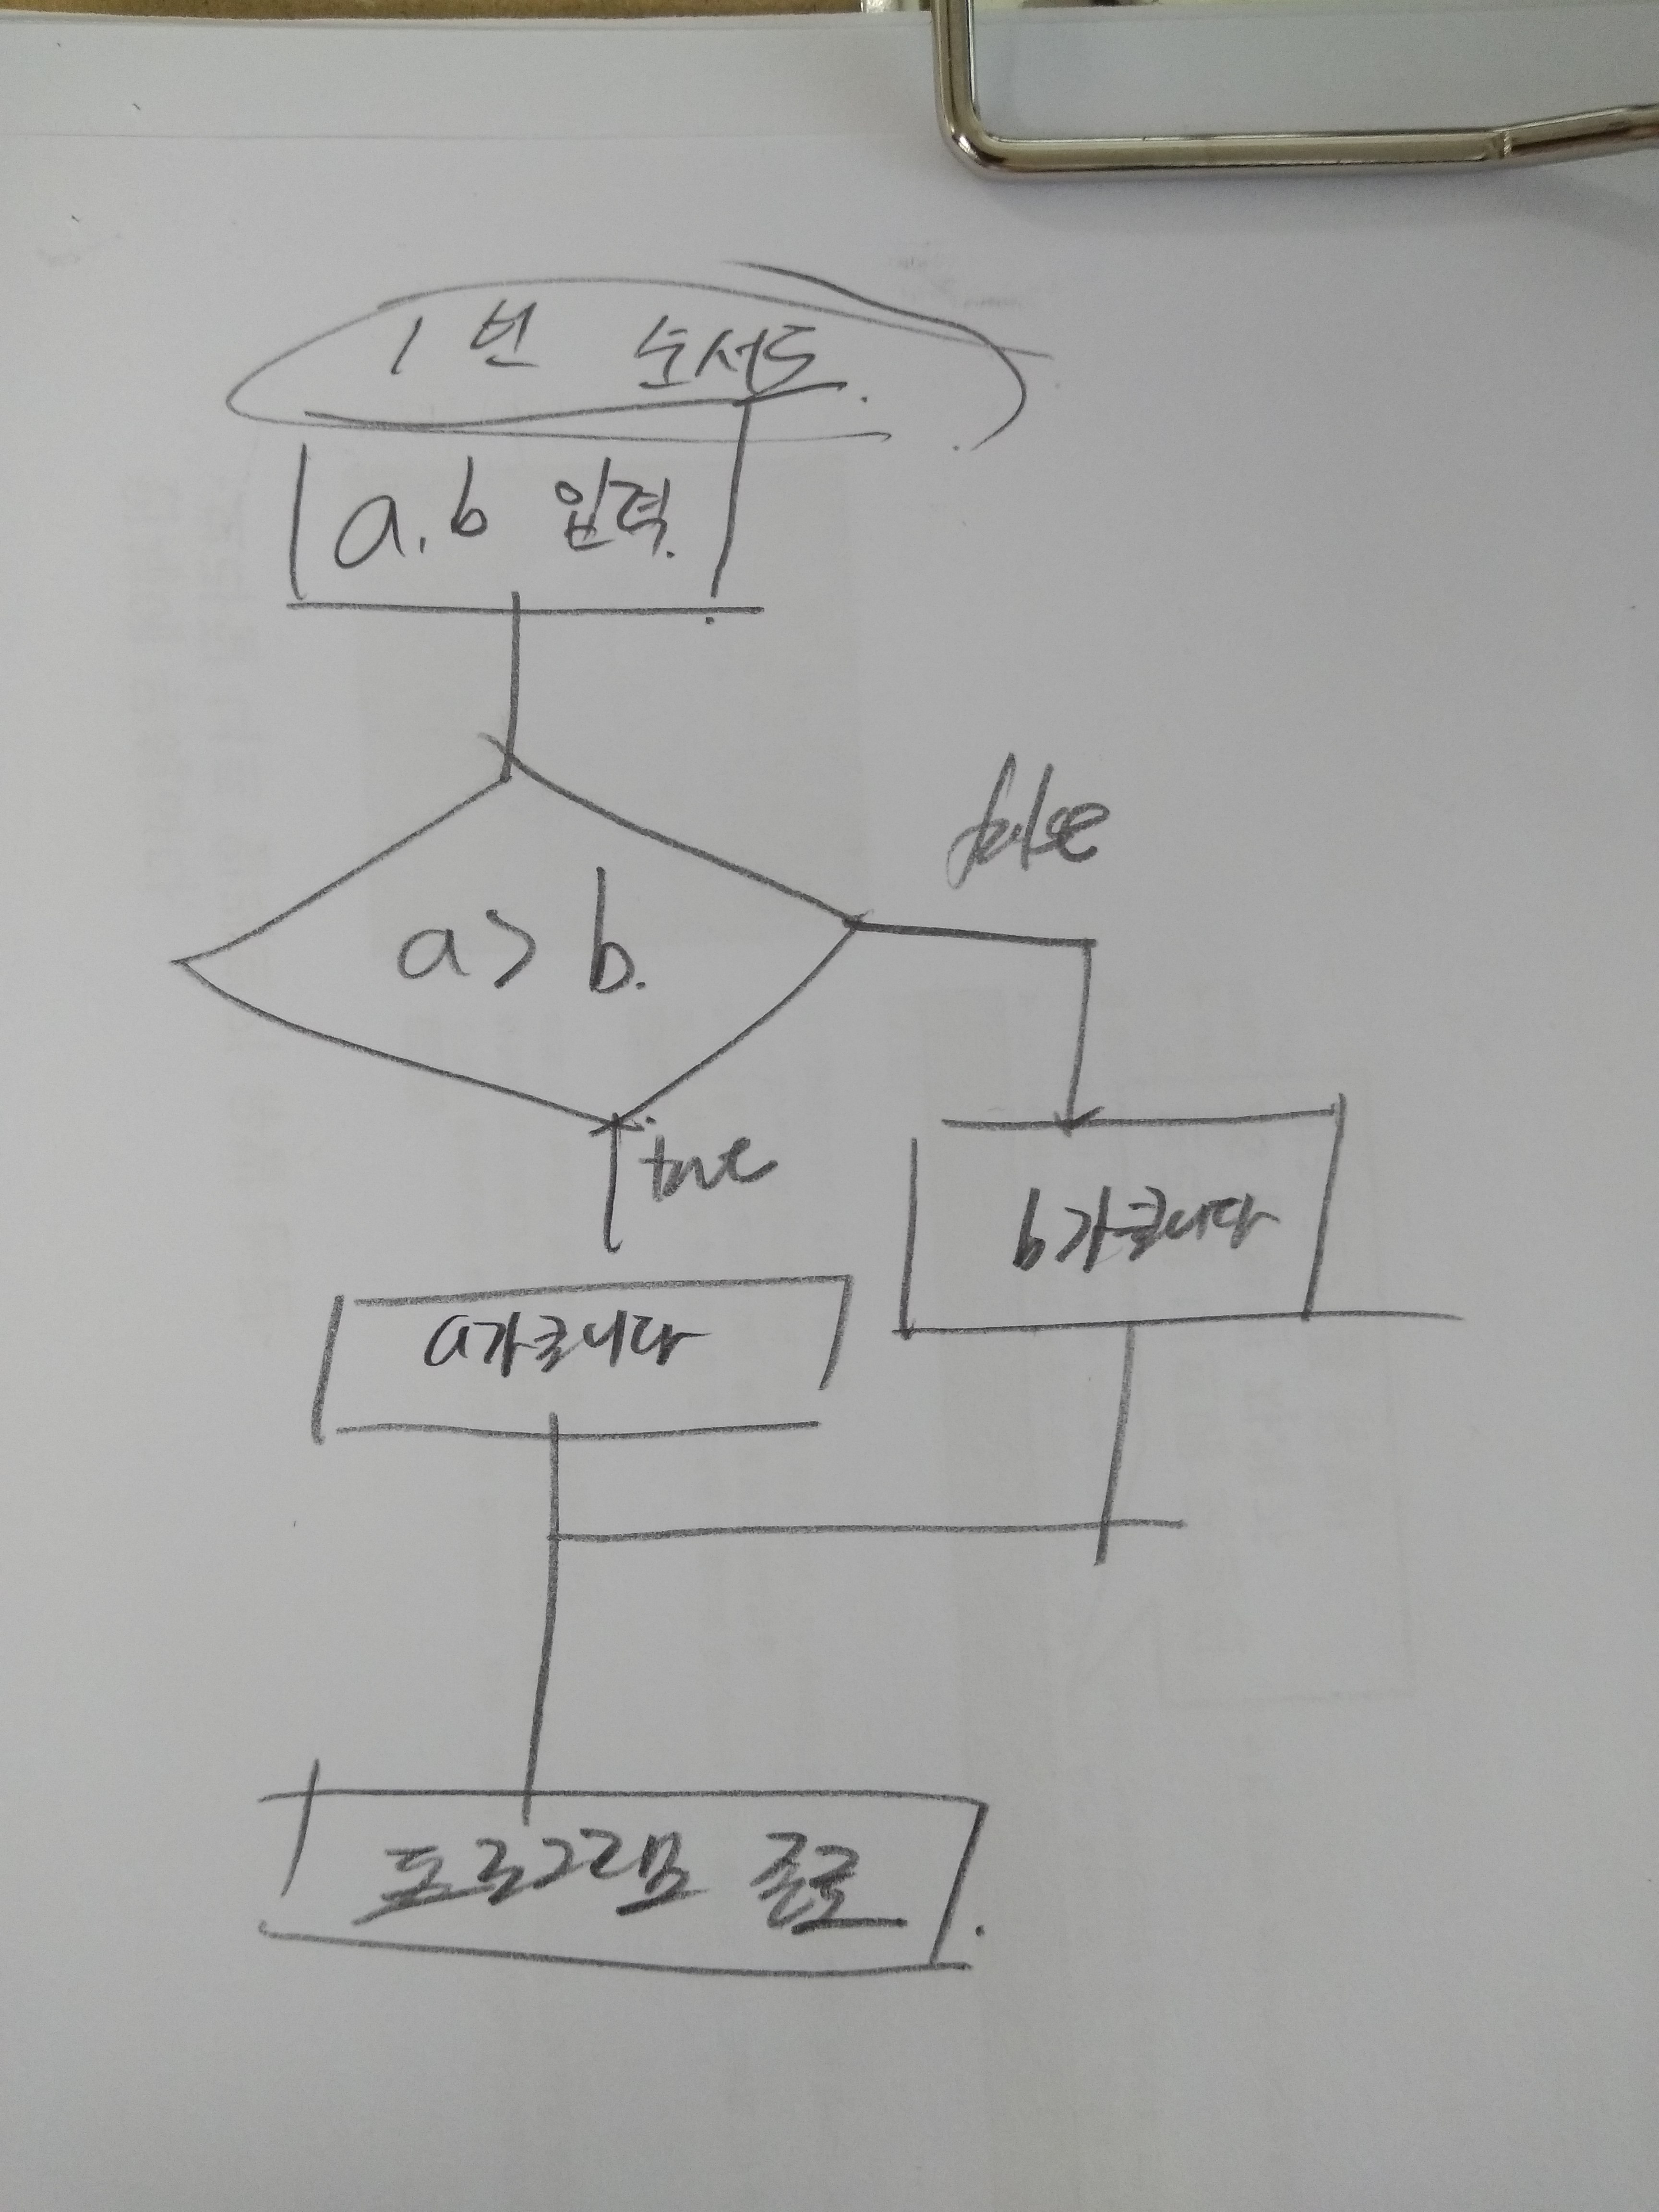 1번 순서도.
a,b 입력.
a > b.
false
true
b가큽니다
a가큽니다
프로그램 종료